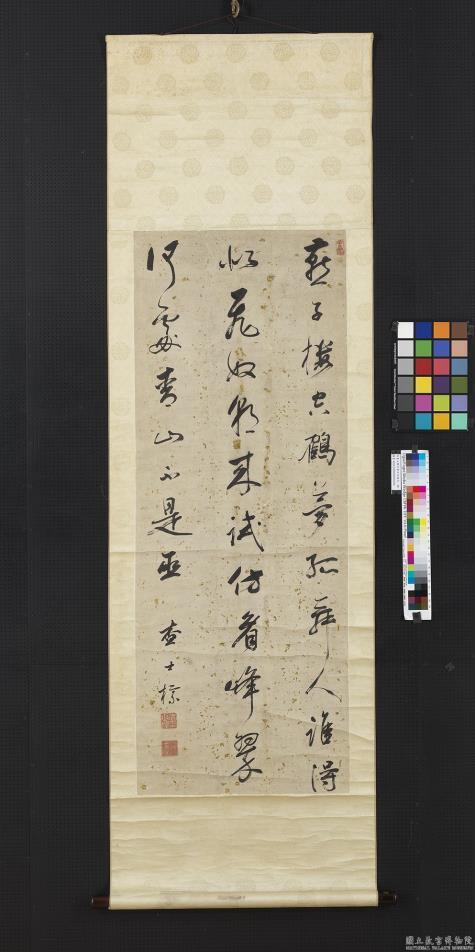 燕子樓空鶴夢孤舞人誰得
似花奴朝來試倚看峰翠
何處青山不是巫
查士標
國立故宮博物院
NATIONAL PALACE MUSEUM